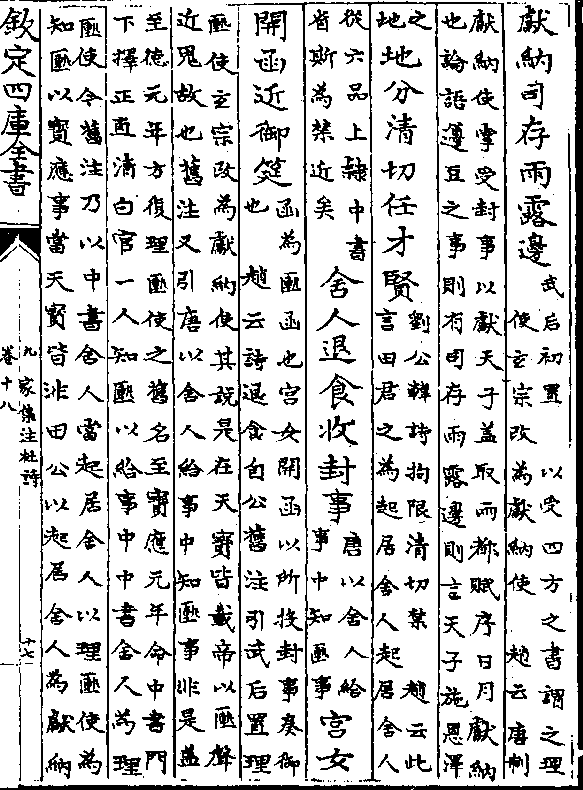 獻納司存雨露邊
武后初置　以受四方之書謂之理
使玄宗改為獻納使　趙云唐制
獻納使掌受封事以獻天子蓋取兩都賦序日月獻納
也論語籩豆之事則有司存雨露邊則言天子施恩澤
之
地
地分清切任才賢
劉公幹詩拘限清切禁　趙云此
言田君之為起居舍人起居舍人
從六品上隸中書
省斯為禁近矣
舍人退食收封事
唐以舍人給
事中知匭事
宮女
開函近御筵
函為匭函也宮女開函以所投封事奏御
也　趙云詩退食自公舊注引武后置理
匭使玄宗改為獻納使其說是在天寶皆載帝以匭聲
近鬼故也舊注又引唐以舍人給事中知匭事非是蓋
至德元年方復理匭使之舊名至寶應元年命中書門
下擇正直清白官一人知匭以給事中中書舍人為理
匭使今舊注乃以中書舍人當起居舍人以理匭使為
知匭以寶應事當天寶皆非田公以起居舍人為獻納
欽定四庫全書
九家集注杜詩
卷十八
十七